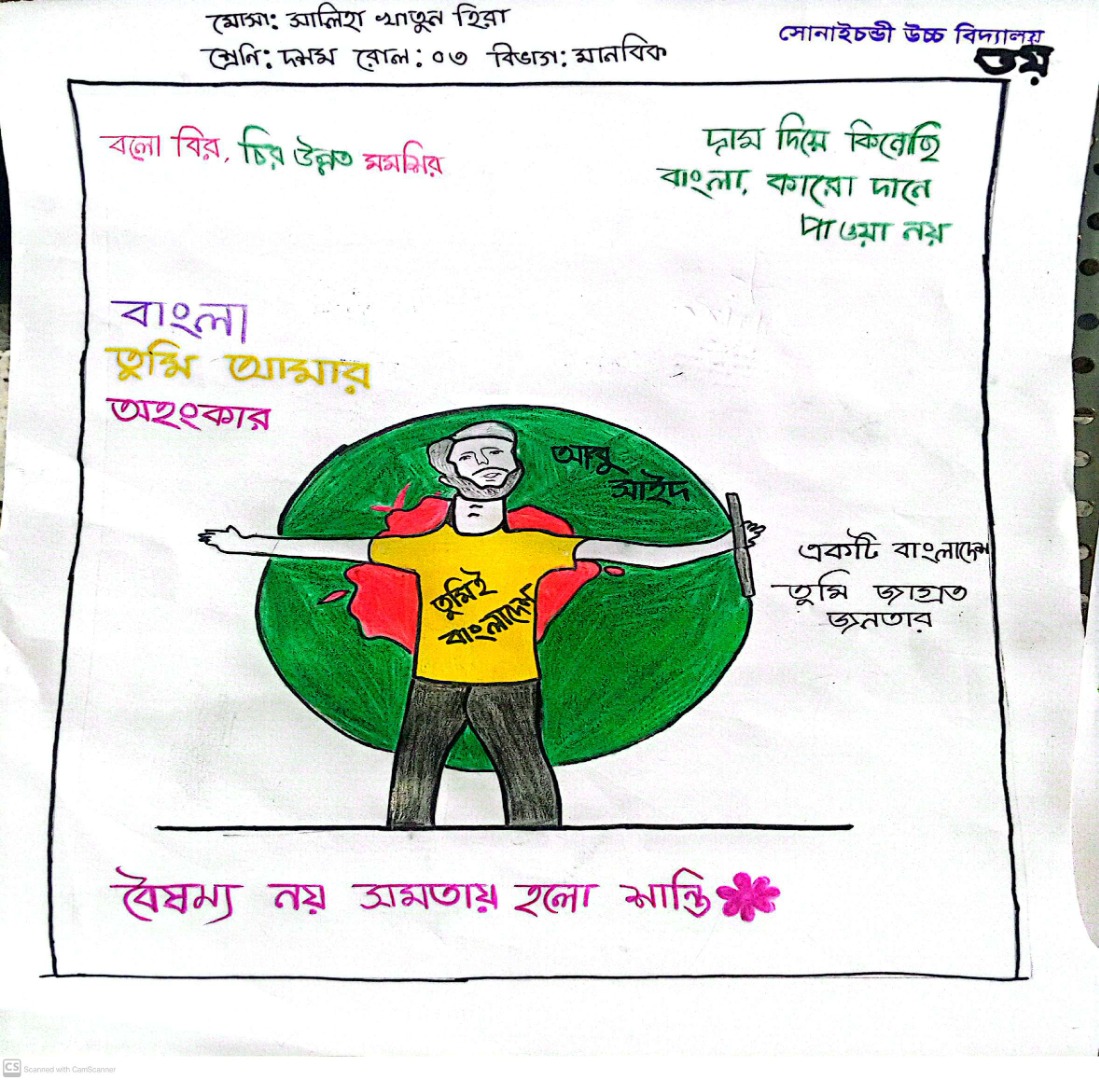 মোসা: সালিহা খাতুন হিরা
শ্রেণি: দশম রোল: ০৩ বিভাগ: মানবিক
সোনাইচন্ডী উচ্চ বিদ্যালয়
৩য়
বলো বির, চির উন্নত মমসির
দাম দিয়ে কিনেছি
বাংলা, কারো দানে
পাওয়া নয়
বাংলা
তুমি আমার
অহংকার
আবু
সাইদ
তুমিই
বাংলাদেশ
একটি বাংলাদেশ
তুমি জাগ্রত
জনতার
বৈষম্য নয় সমতায় হলো শান্তি
CS Scanned with CamScanner